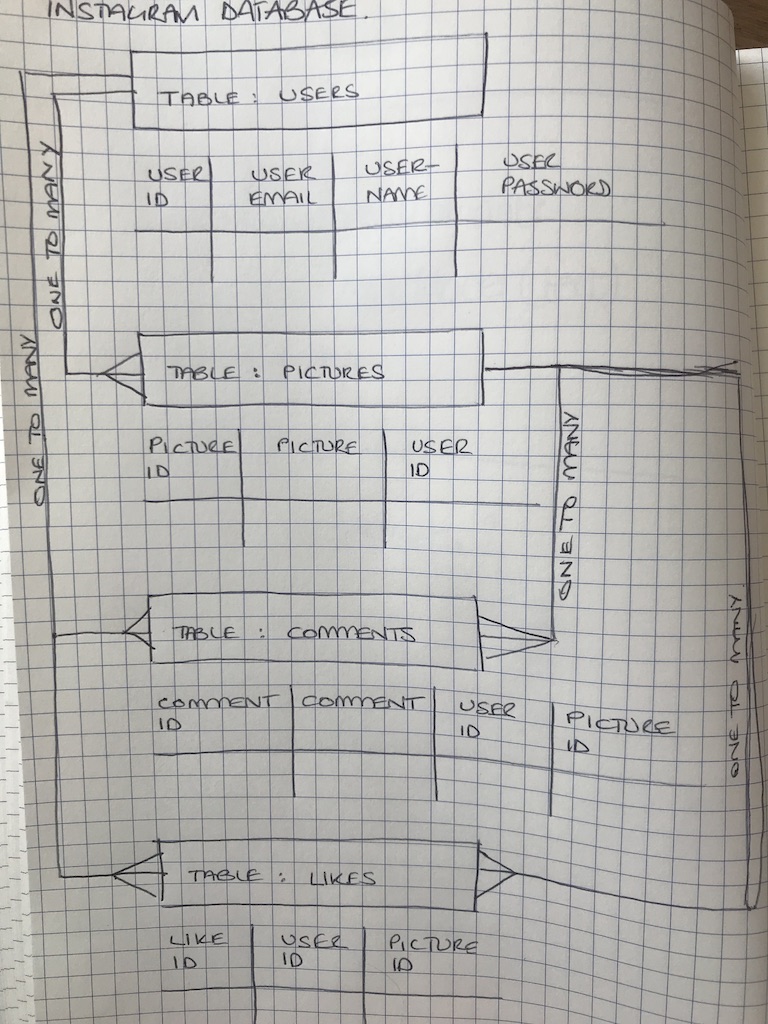 INSTAGRAM DATABASE.
TABLE : USERS
USER ID
USER EMAIL
USER-NAME
USER PASSWORD
ONE TO MANY
ONE TO MANY
TABLE : PICTURES
PICTURE ID
PICTURE
USER ID
ONE TO MANY
TABLE : COMMENTS
COMMENT ID
COMMENT
USER ID
PICTURE ID
ONE TO MANY
TABLE : LIKES
LIKE ID
USER ID
PICTURE ID